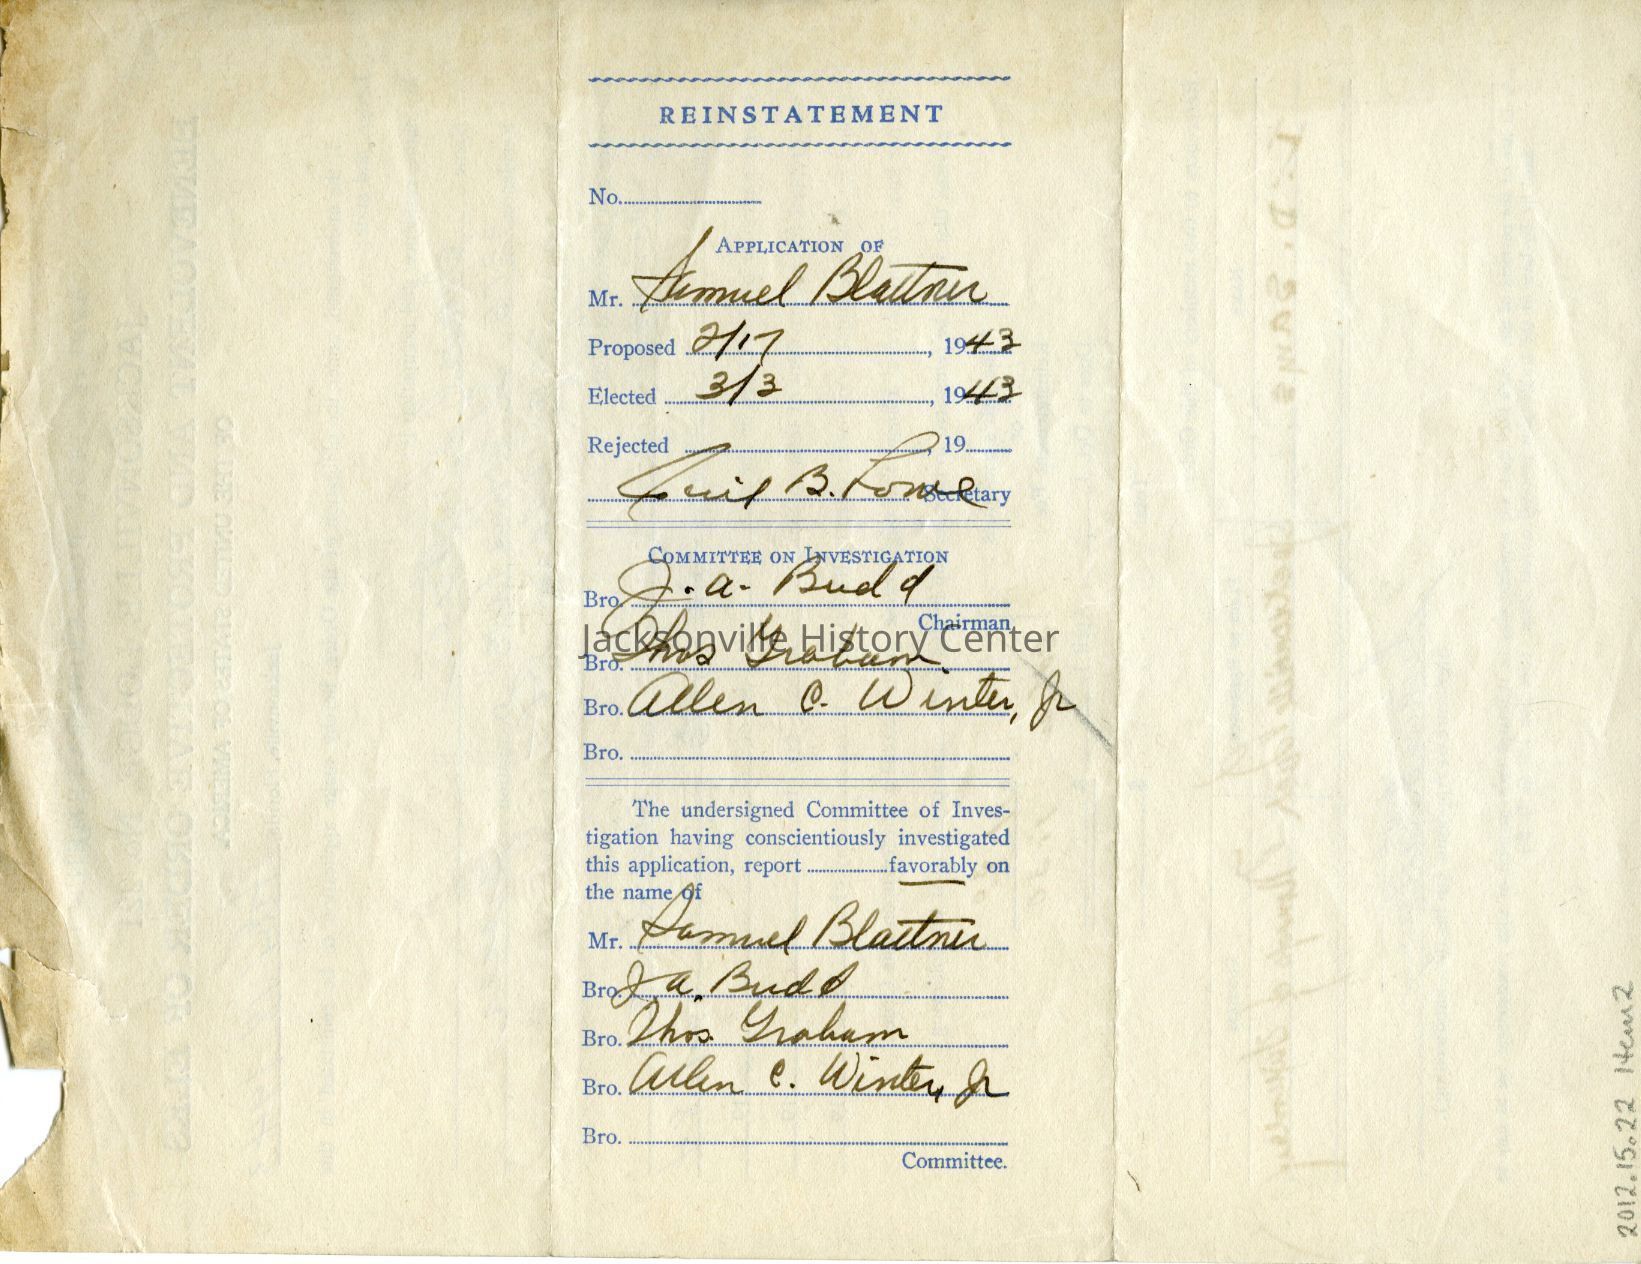 REINSTATEMENT
No.
APPLICATION OF
Mr. Samuel Blattner
Proposed 2/17, 1943
Elected 3/3, 1943
Rejected , 19
Cecil B. Lowe Secretary
COMMITTEE ON INVESTIGATION
Bro. J. A. Budd
Chairman
Jacksonville History Center
Bro. Thos Graham
Bro. Allen C. Winter, Jr
Bro.
The undersigned Committee of Inves-
tigation having conscientiously investigated
this application, report favorably on
the name of
Mr. Samuel Blattner
Bro. J A. Budd
Bro. Thos. Graham
Bro. Allen C. Winter, Jr
Bro.
Committee.
2012.15.22 Item 2
BENEVOLENT AND PROTECTIVE ORDER OF ELKS
OF THE UNITED STATES OF AMERICA